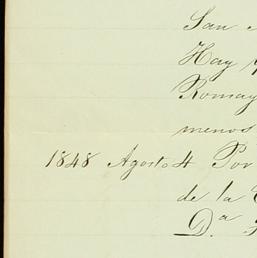 San
Hay
Romay
menos
1848 Agosto 4 Por
de la
D.ª